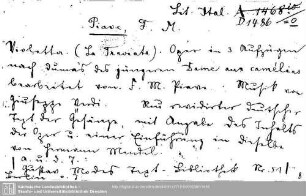 Lit. Ital. A 1468
D 1486
Piave, F. M.
Violetta. (La Traviata). Oper in 3 Aufzügen
nach dumas des jüngeren Dame aux camelias
bearbeitet von F. M. Piave. Musik von
Giuseppe Verdi. Neu revidirter deutscher
Text der Gesänge mit Angabe des Inhalts
der Oper u. einer Einführung in dieselbe
von Hermann Mendel.
Modes Text-Bibliothek Nr. 51
Sächsische Landesbibliothek -
Staats- und Universitätsbibliothek Dresden